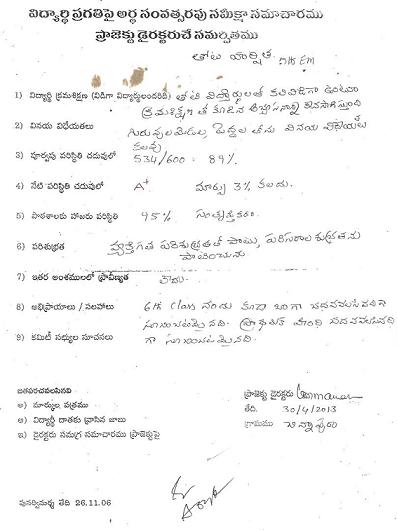 విద్యార్థి ప్రగతిపై అర్థ సంవత్సరపు సమీక్షా సమాచారము
ప్రాజెక్టు డైరెక్టరుచే సమర్పితము
తోట హర్షిత. 5th EM
1) విద్యార్థి క్రమశిక్షణ (విడిగా విద్యార్థులందరిది) తోటి విద్యార్థులతో కలివిడిగా ఉంటూ
క్రమశిక్షణ తో కూడిన
2) వినయ విధేయతలు గురువులయెడల, పెద్దల తోను వినయ విధేయత
కలవు
3) పూర్వపు పరిస్థితి చదువులో 534/600 : 89%.
4) నేటి పరిస్థితి చదువులో A+ మార్పు 3% కలదు.
5) పాఠశాలకు హాజరు పరిస్థితి 95% సంతృప్తికరం.
6) పరిశుభ్రత వ్యక్తిగత పరిశుభ్రతతో పాటు, పరిసరాల శుభ్రతను
పాటించును
7) ఇతర అంశములలో ప్రావీణ్యత
8) అభిప్రాయాలు / సలహాలు 6th Class నందు కూడా బాగా చదవవలసినదిగా
సూచించడమైనది.
9) కమిటీ సభ్యుల సూచనలు గా సూచించడమైనది.
జతపరచవలసినవి
అ) మార్కుల పత్రము
ఆ) విద్యార్థి దాతకు వ్రాసిన జాబు
ఇ) డైరెక్టరు సమగ్ర సమాచారము ప్రాజెక్టుపై
ప్రాజెక్టు డైరెక్టరు
తేది. 30/4/2013
గ్రామము
పునర్విమర్శ తేది 26.11.06